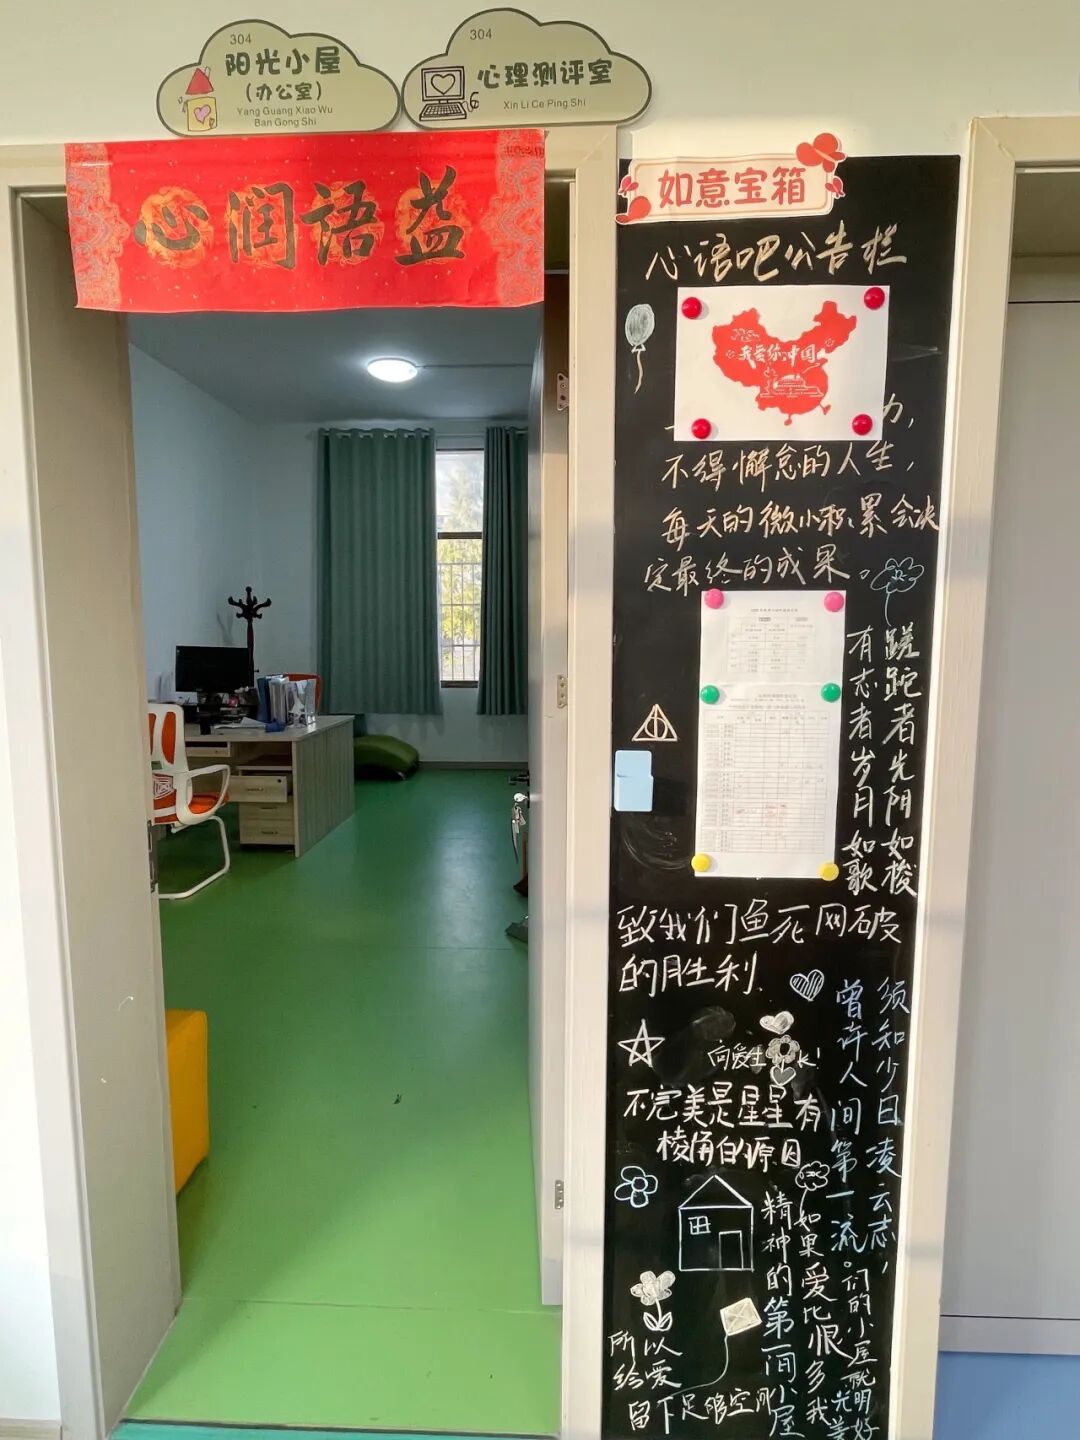 304
阳光小屋
(办公室)
Yang Guang Xiao Wu
Ban Gong Shi
304
心理测评室
Xin Li Ce Ping Shi
心润语益
如意宝箱
心语吧公告栏
我爱你中国
力，
不得懈怠的人生，
每天的微小积累会决
定最终的成果。
蹉跎者光阴如梭
有志者岁月如歌
致我们鱼死网破
的胜利.
须知少日凌云志，
曾许人间第一流。
向爱生长!
不完美是星星有
棱角的原因
如果爱比恨多我
们的小屋就
光明
美好
精神的第一间小屋
所以
给爱
留下足够空间